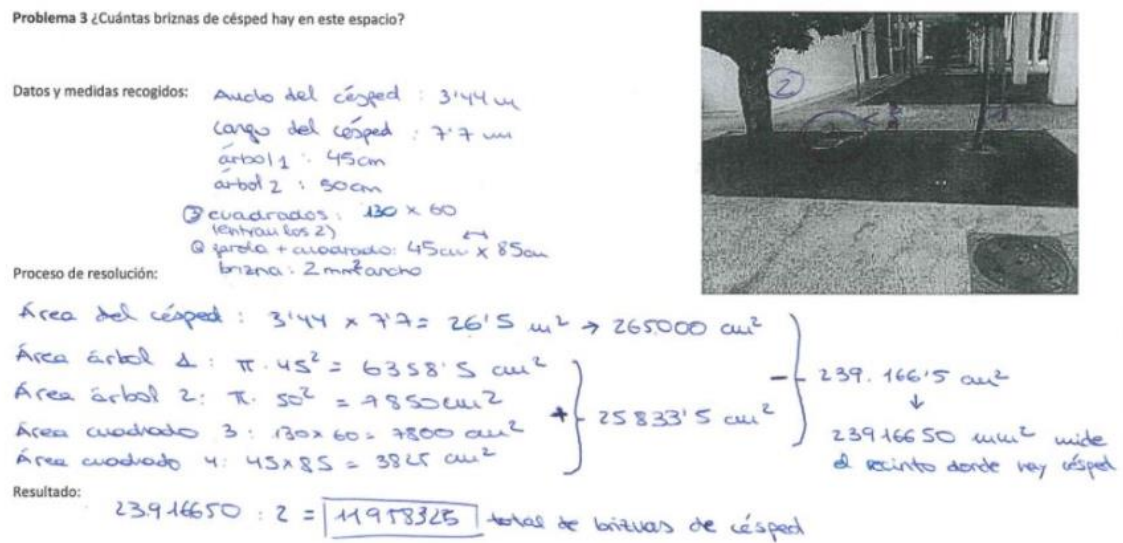 Problema 3 ¿Cuántas briznas de césped hay en este espacio?
Datos y medidas recogidos:
Ancho del césped : 3'44 m
Largo del césped : 7'7 m
árbol 1 : 45cm
árbol 2 : 50cm
③ cuadrados : 130 x 60
(entran los 2)
+ cuadrado: 45cm x 85cm
brizna : 2 mm² ancho
Proceso de resolución:
Área del césped : 3'44 x 7'7 = 26'5 m² → 265000 cm²
Área árbol 1 : π . 45² = 6358'5 cm²
Área árbol 2 : π . 50² = 7850 cm²
Área cuadrado 3 : 130x60 = 7800 cm²
Área cuadrado 4 : 45x85 = 3825 cm²
+ 25833'5 cm²
- 239.166'5 cm²
↓
23916650 mm² mide
el recinto donde hay césped
Resultado:
23916650 : 2 = 11958325 total de briznas de césped
2
1